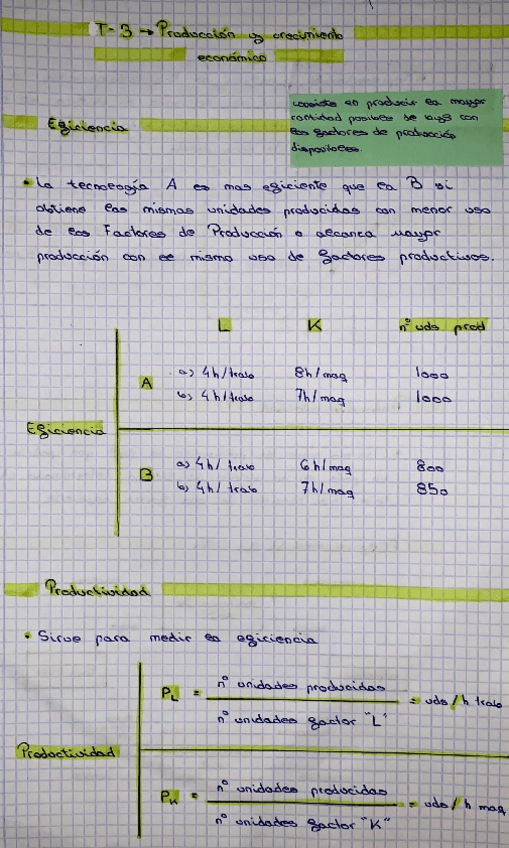 T-3 → Producción y crecimiento
económico
consiste en producir la mayor
cantidad posible de byg con
los factores de producción
disponibles.
Eficiencia
• La tecnología A es mas eficiente que la B si
obtiene las mismas unidades producidas con menor uso
de los Factores de Producción o alcanca mayor
producción con el mismo uso de factores productivos.
L K nº uds prod
A a) 4h/trab 8h/maq 1000
b) 4h/trab 7h/maq 1000
Eficiencia
B a) 4h/trab 6h/maq 800
b) 4h/trab 7h/maq 850
Productividad
• Sirve para medir la eficiencia
PL = nº unidades producidas = uds/h trab
nº unidades factor "L"
Productividad
PK = nº unidades producidas = uds/h maq
nº unidades factor "K"